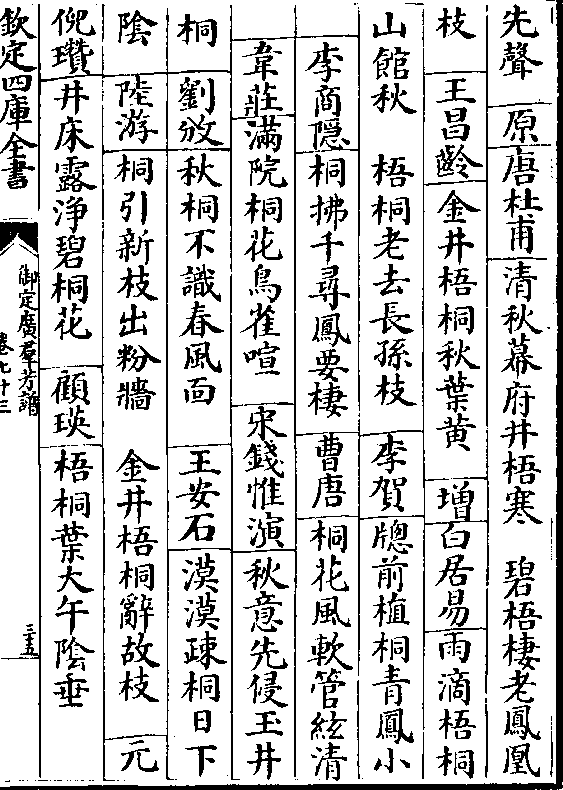 先聲　原唐杜甫清秋幕府井梧寒　碧梧棲老鳳凰
枝　王昌齡金井梧桐秋葉黄　增白居易雨滴梧桐
山館秋　梧桐老去長孫枝　李賀牕前植桐青鳳小
李商隱桐拂千尋鳳要棲　曹唐桐花風軟管絃清
韋莊滿院桐花鳥雀喧　宋錢惟演秋意先侵玉井
桐　劉攽秋桐不識春風面　王安石漠漠疎桐日下
陰　陸游桐引新枝出粉牆　金井梧桐辭故枝　元
倪瓚井床露淨碧桐花　顧瑛梧桐葉大午陰垂
欽定四庫全書
御定廣羣芳譜
卷七十三
三五